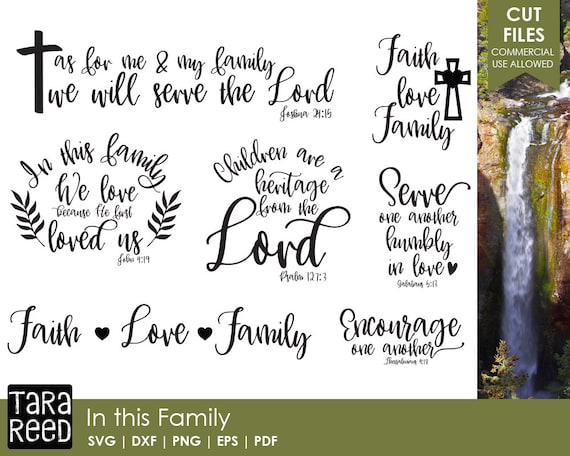 as for me & my family
we will serve the Lord
Joshua 24:15
Faith
love
Family
CUT
FILES
COMMERCIAL
USE ALLOWED
In this family
We love
because He first
loved us
John 4:19
Children are a
heritage
from the
Lord
Psalm 127:3
Serve
one another
humbly
in love
Galatians 5:13
Faith Love Family
Encourage
one another
TARA
REED
In this Family
SVG | DXF | PNG | EPS | PDF